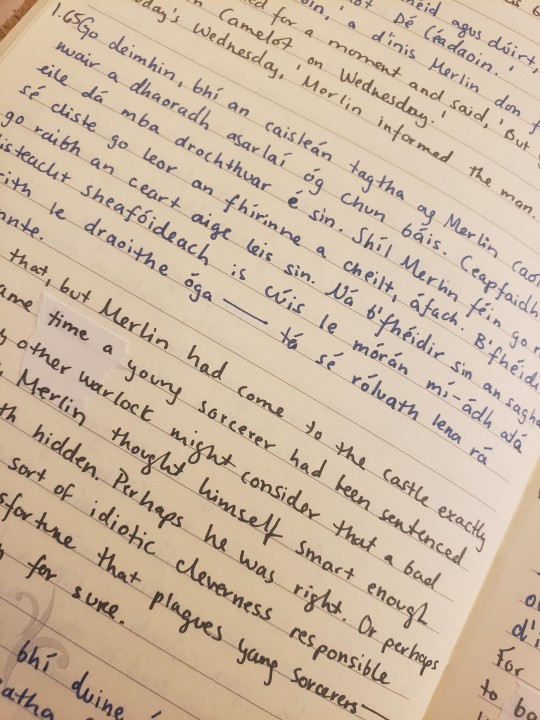 agus dúirt,
Dé Céadaoin.'
a d'inis Merlin don
for a moment and said, 'But
in Camelot on Wednesday.'
Wednesday, Merlin informed the man.
1.65Go deimhin, bhí an caisleán tagtha ag Merlin
nuair a dhaoradh asarlaí óg chun báis. Ceapfaidh
eile dá mba drochthuar é sin. Shíl Merlin féin go
sé cliste go leor an fhírinne a cheilt, áfach.
go raibh an ceart aige leis sin. Ná b'fhéidir sin an
sheafóideach is cúis le mórán mí-ádh atá
le draoithe óga — tá sé róluath lena rá
that, but Merlin had come to the castle exactly
time a young sorcerer had been sentenced
other warlock might consider that a bad
Merlin thought himself smart enough
hidden. Perhaps he was right. Or perhaps
sort of idiotic cleverness responsible
that plagues young sorcerers—
for sure.
bhí duine
For
to